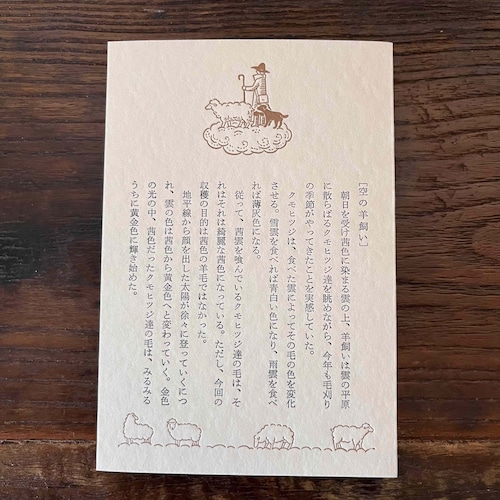 [空の羊飼い]
朝日を受け茜色に染まる雲の上、羊飼いは雲の平原
に散らばるクモヒツジ達を眺めながら、今年も毛刈り
の季節がやってきたことを実感していた。
クモヒツジは、食べた雲によってその毛の色を変化
させる。雪雲を食べれば青白い色になり、雨雲を食べ
れば薄灰色になる。
従って、茜雲を喰んでいるクモヒツジ達の毛は、そ
れはそれは綺麗な茜色になっている。ただし、今回の
収穫の目的は茜色の羊毛ではなかった。
地平線から顔を出した太陽が徐々に登っていくにつ
れ、雲の色は茜色から黄金色へと変わっていく。金色
の光の中、茜色だったクモヒツジ達の毛は、みるみる
うちに黄金色に輝き始めた。